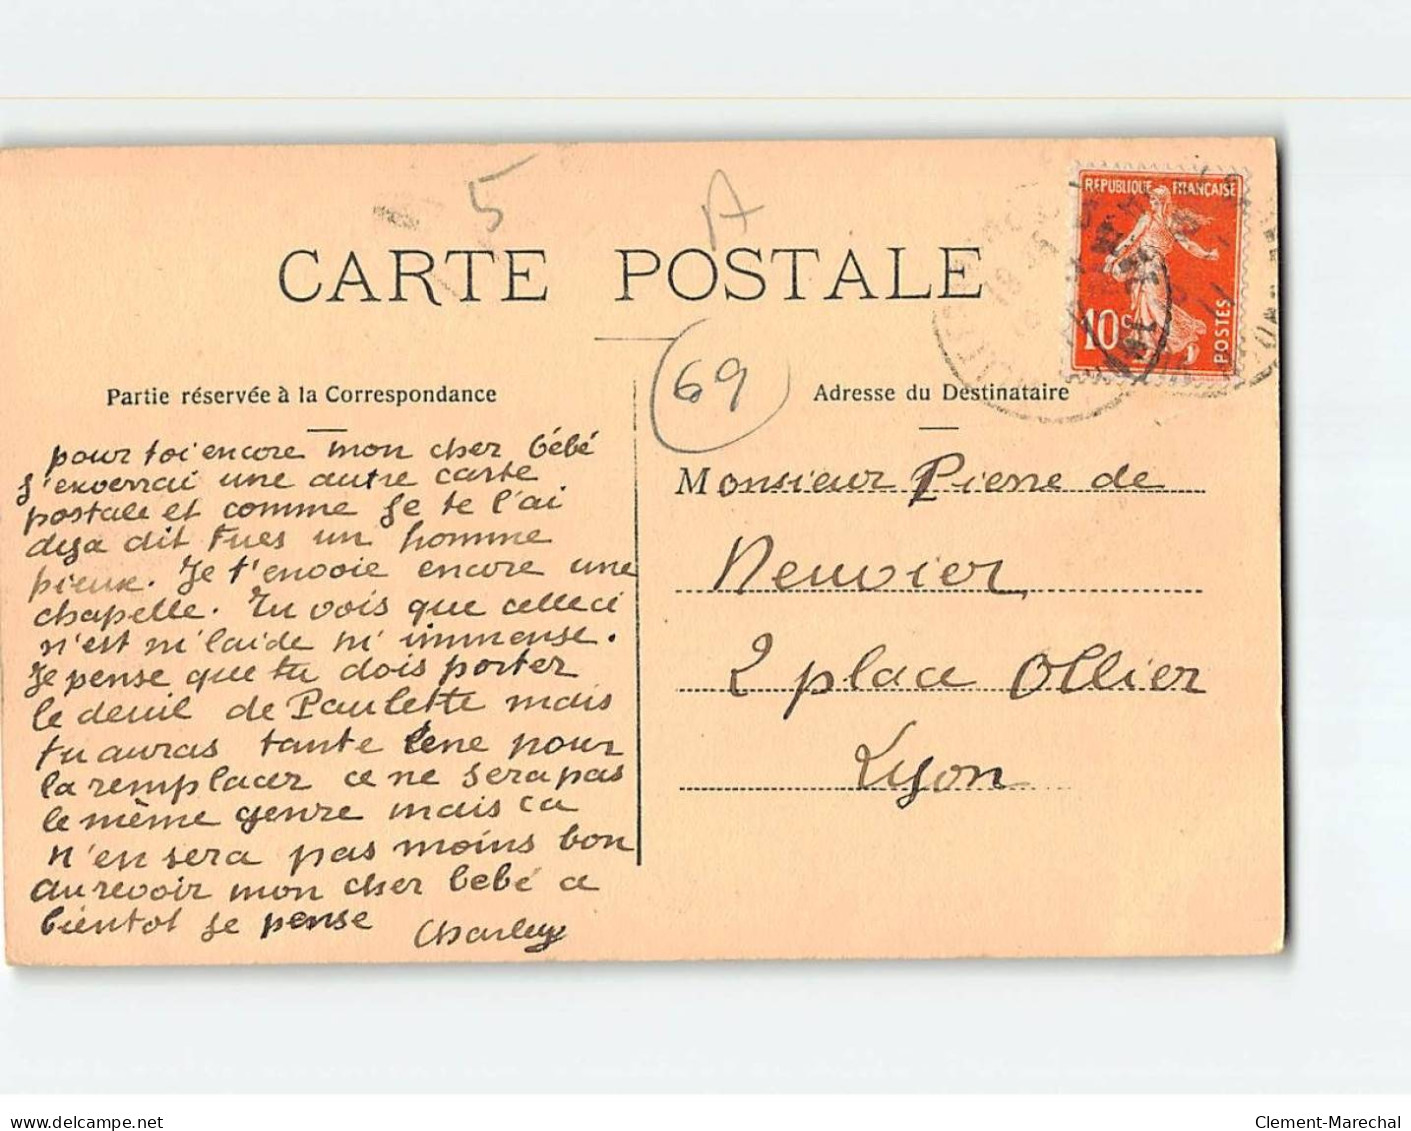 5
A
CARTE POSTALE
REPUBLIQUE FRANÇAISE
10c
POSTES
69
Partie réservée à la Correspondance
pour toi encore mon cher bébé
j'enverrai une autre carte
postale et comme je te l'ai
deja dit tu es un homme
pieux. Je t'envoie encore une
chapelle. Tu vois que celle ci
n'est ni laide ni immense.
Je pense que tu dois porter
le deuil de Paulette mais
tu auras tante Lene pour
la remplacer ce ne sera pas
le même genre mais ca
n'en sera pas moins bon
au revoir mon cher bebé a
bientot je pense Charley
Adresse du Destinataire
Monsieur Pierre de
Neuvier
2 place Ollier
Lyon
delcampe.net
Clement-Marechal